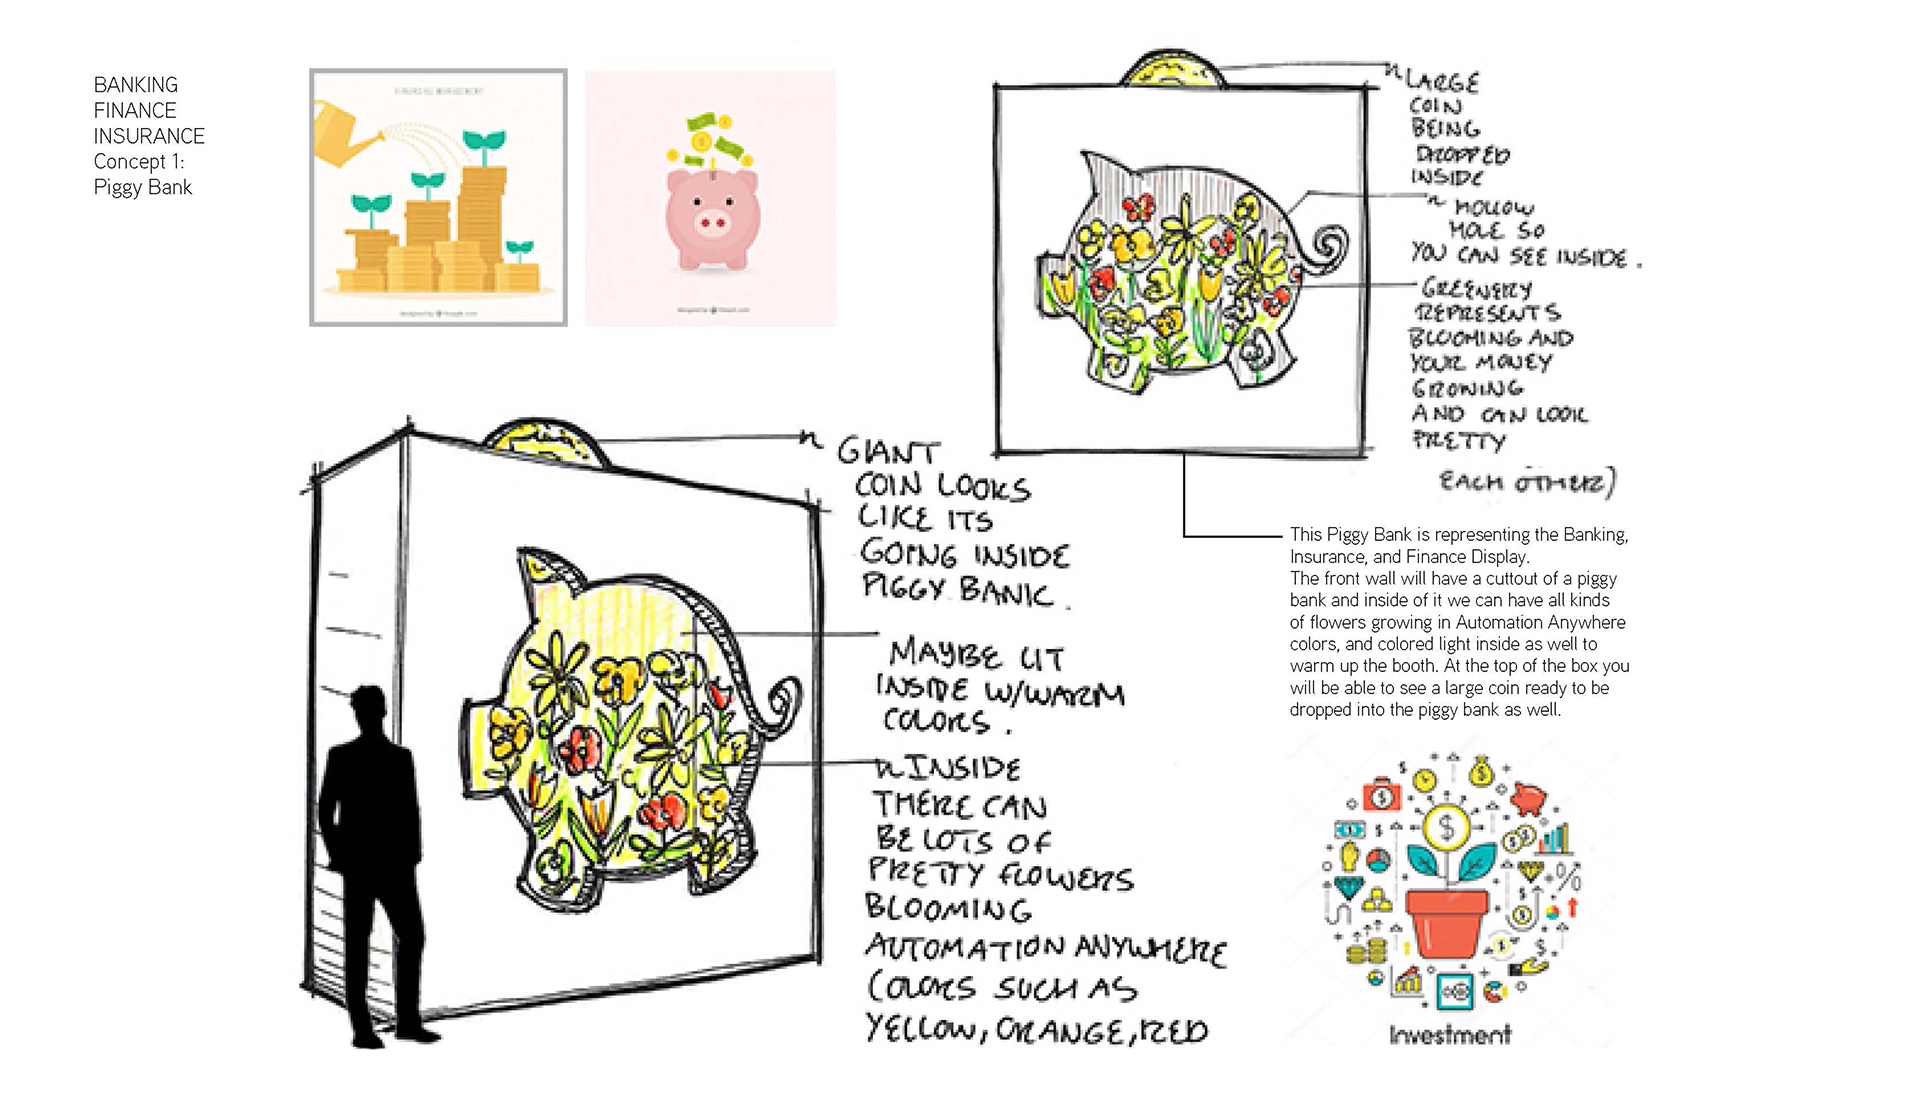 BANKING
FINANCE
INSURANCE
Concept 1:
Piggy Bank
FINANCIAL MANAGEMENT
designed by freepik.com
designed by freepik.com
LARGE
COIN
BEING
DROPPED
INSIDE
HOLLOW
HOLE SO
YOU CAN SEE INSIDE.
GREENERY
REPRESENTS
BLOOMING AND
YOUR MONEY
GROWING
AND CAN LOOK
PRETTY
EACH OTHER)
GIANT
COIN LOOKS
LIKE ITS
GOING INSIDE
PIGGY BANK.
MAYBE LIT
INSIDE W/WARM
COLORS.
INSIDE
THERE CAN
BE LOTS OF
PRETTY FLOWERS
BLOOMING
AUTOMATION ANYWHERE
COLORS SUCH AS
YELLOW, ORANGE, RED
This Piggy Bank is representing the Banking,
Insurance, and Finance Display.
The front wall will have a cuttout of a piggy
bank and inside of it we can have all kinds
of flowers growing in Automation Anywhere
colors, and colored light inside as well to
warm up the booth. At the top of the box you
will be able to see a large coin ready to be
dropped into the piggy bank as well.
Investment